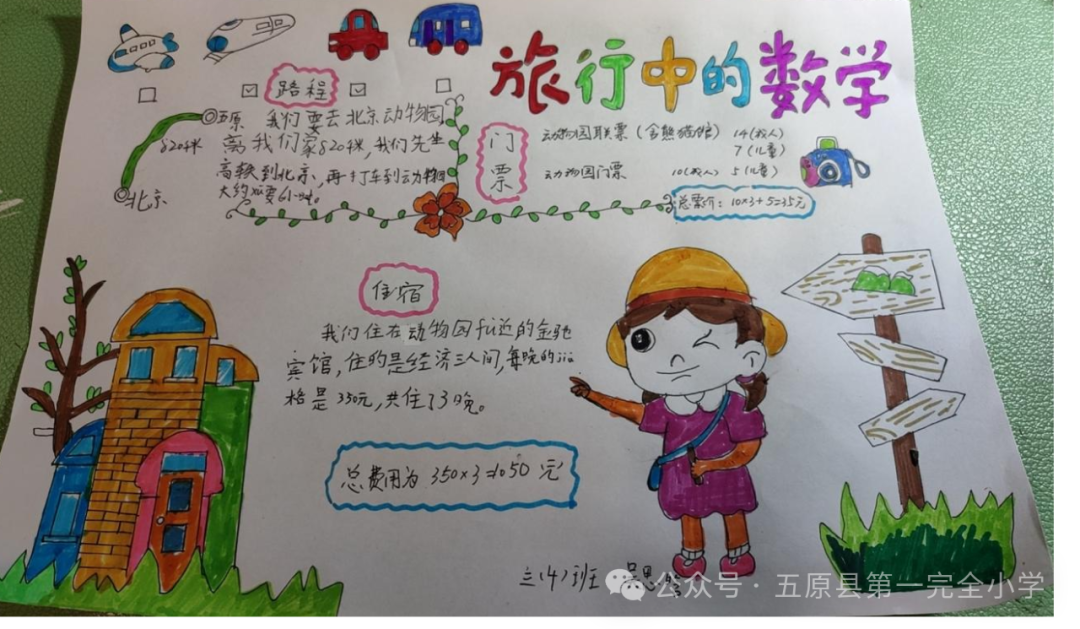 旅行中的数学
路程
五原
820千米
北京
我们要去北京动物园
离我们家820千米,我们先坐
高铁到北京,再打车到动物园
大约需要6小时。
门票
动物园联票(含熊猫馆) 14(成人)
7(儿童)
动物园门票 10(成人) 5(儿童)
总票价:10×3+5=35元
住宿
我们住在动物园fù近的金驰
宾馆,住的是经济三人间,每晚的jià
格是350元,共住了3晚。
总费用为 350×3=1050 元
三(4)班 吴思
公众号·五原县第一完全小学